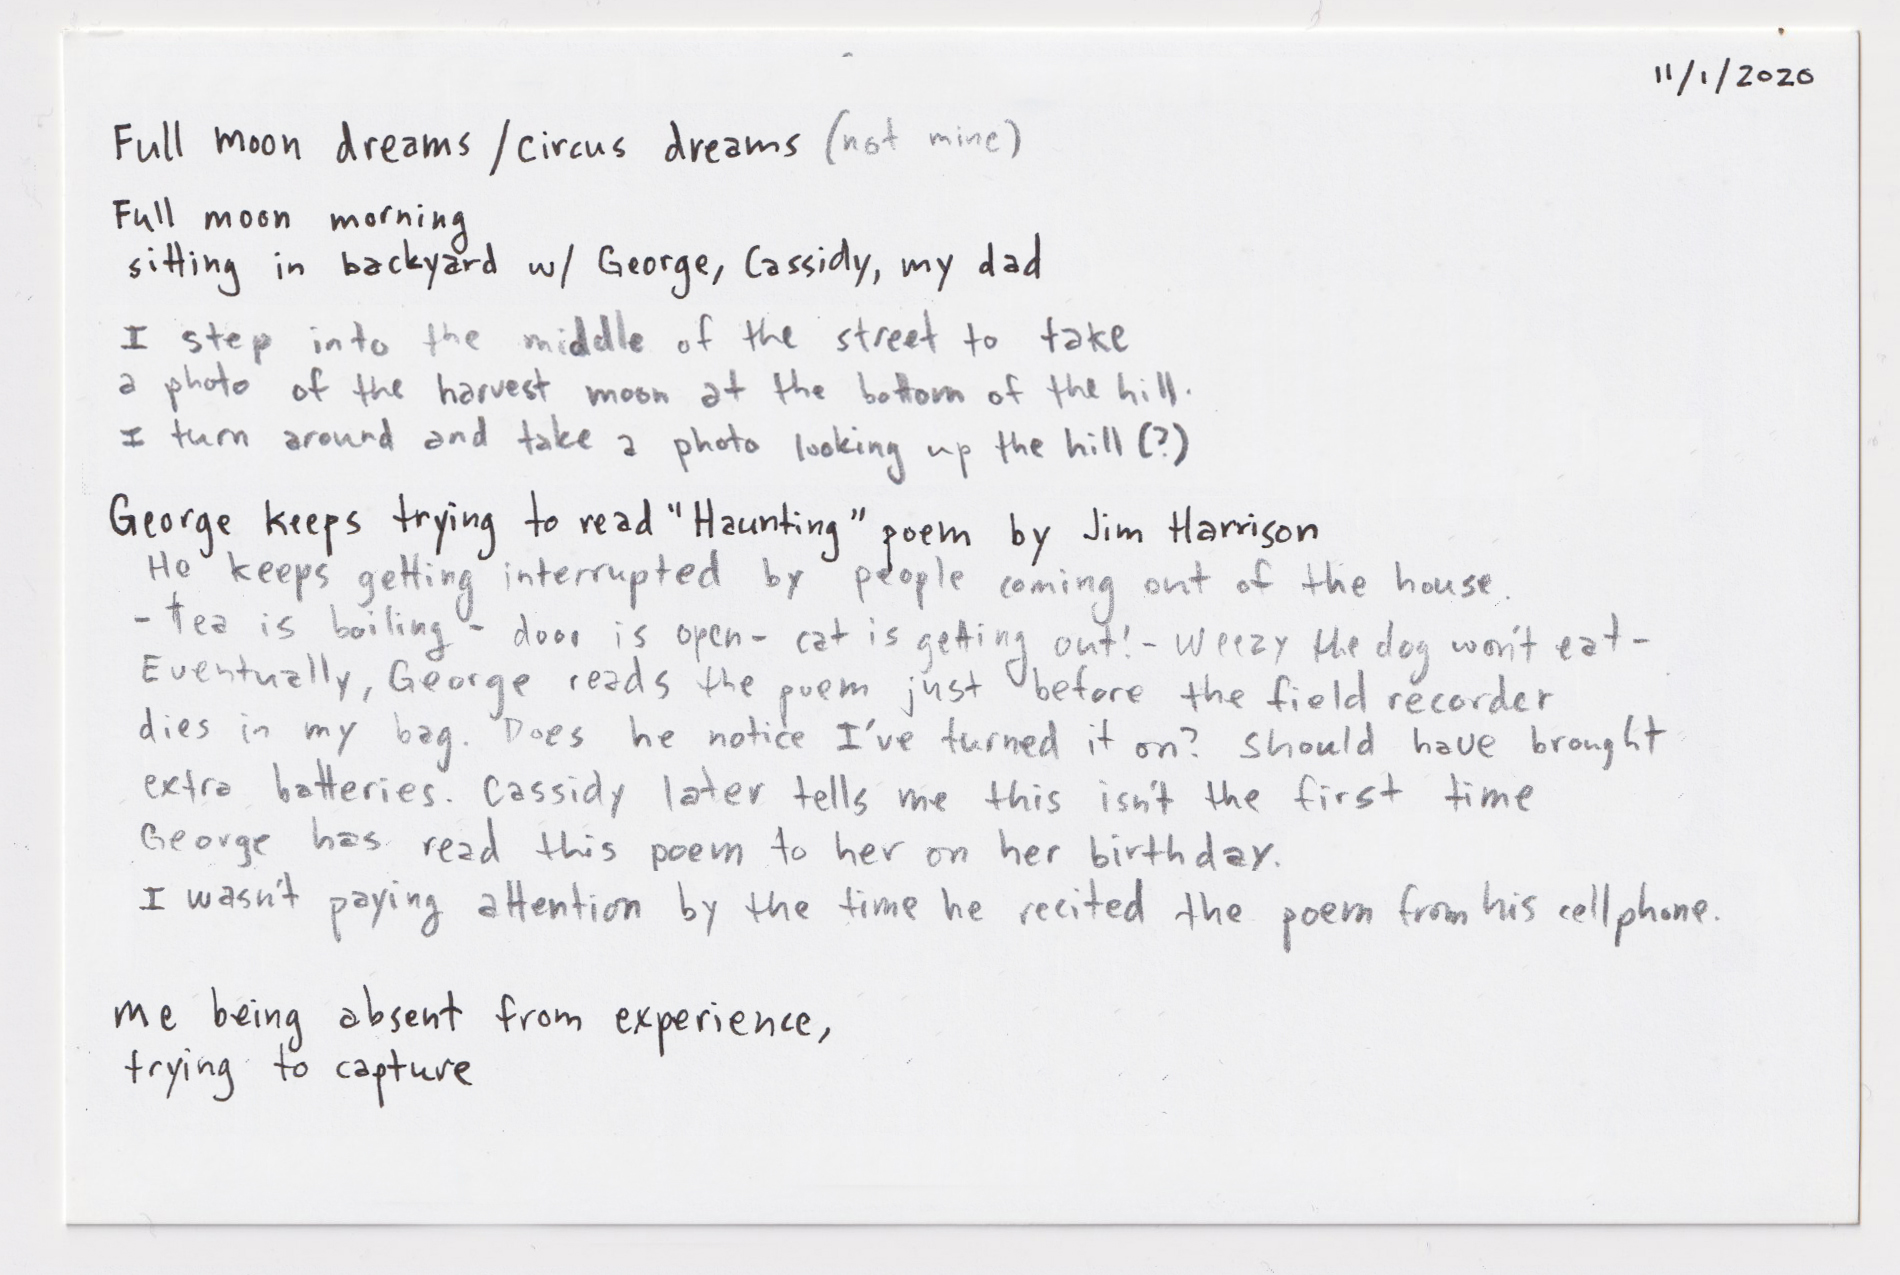 11/1/2020
Full moon dreams / circus dreams (not mine)
Full moon morning
sitting in backyard w/ George, Cassidy, my dad
I step into the middle of the street to take
a photo of the harvest moon at the bottom of the hill.
I turn around and take a photo looking up the hill (?)
George keeps trying to read "Haunting" poem by Jim Harrison
He keeps getting interrupted by people coming out of the house.
- tea is boiling - door is open - cat is getting out! - Weezy the dog won't eat -
Eventually, George reads the poem just before the field recorder
dies in my bag. Does he notice I've turned it on? Should have brought
extra batteries. Cassidy later tells me this isn't the first time
George has read this poem to her on her birthday.
I wasn't paying attention by the time he recited the poem from his cellphone.
me being absent from experience,
trying to capture